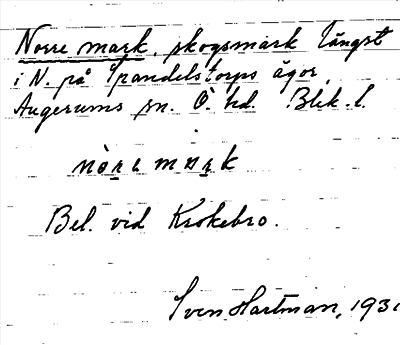 Norre mark, skogsmark längst
i N. på Spandelstorps ägor,
Augerums sn. Ö. hd. Blek. l.
nòrɛ mark
Bel. vid Krokebro.
Sven Hartman, 1931